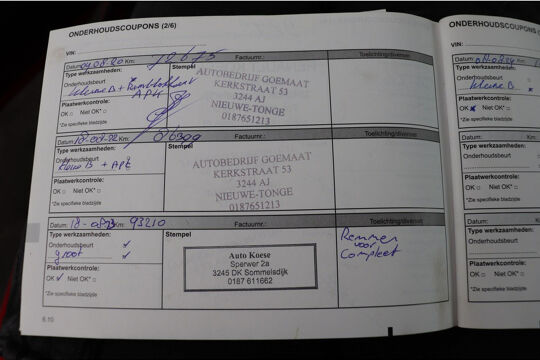 ONDERHOUDSCOUPONS (2/6)
VIN:
Datum: 04-08-20 Km: 78675 Factuurnr.: Toelichting/diversen
Type werkzaamheden: Stempel
Onderhoudsbeurt
kleine B + Remblokken
APK
Plaatwerkcontrole:
OK □ Niet OK* □
*Zie specifieke bladzijde
AUTOBEDRIJF GOEMAAT
KERKSTRAAT 53
3244 AJ
NIEUWE-TONGE
0187651213
Datum: 18-08-22 Km: 86399 Factuurnr.: Toelichting/diversen
Type werkzaamheden: Stempel
Onderhoudsbeurt
kleine B + APK
Plaatwerkcontrole:
OK □ Niet OK* □
*Zie specifieke bladzijde
AUTOBEDRIJF GOEMAAT
KERKSTRAAT 53
3244 AJ
NIEUWE-TONGE
0187651213
Datum: 18-08-23 Km: 93210 Factuurnr.: Toelichting/diversen
Type werkzaamheden: Stempel
Onderhoudsbeurt ✓
groot ✓
Plaatwerkcontrole:
OK ✓ Niet OK* □
*Zie specifieke bladzijde
Auto Koese
Sperwer 2a
3245 DK Sommelsdijk
0187 611662
Remmen
voor
Compleet
6.10
ONDERHOUDSCOUPONS (
VIN:
Datum:
Type werkzaamheden:
Onderhoudsbeurt
kleine B
Plaatwerkcontrole:
OK Niet OK* □
*Zie specifieke bladzijde
Datum:
Type werkzaamheden:
Onderhoudsbeurt
Plaatwerkcontrole:
OK □ Niet OK* □
*Zie specifieke bladzijde
Datum:
Type werkzaamheden:
Onderhoudsbeurt
Plaatwerkcontrole:
OK □ Niet OK* □
*Zie specifieke bladzijde